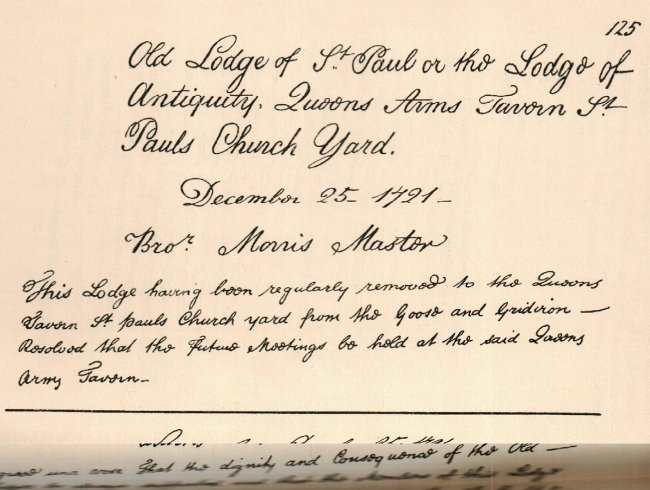 125
Old Lodge of St. Paul or the Lodge of
Antiquity. Queens Arms Tavern St.
Pauls Church Yard.
December 25 - 1721 -
Bror. Morris Master
This Lodge having been regularly removed to the Queens
Tavern St. Pauls Church yard from the Goose and Gridiron —
Resolved that the Future Meetings be held at the said Queens
Arms Tavern -
that the dignity and Consequence of the Old —